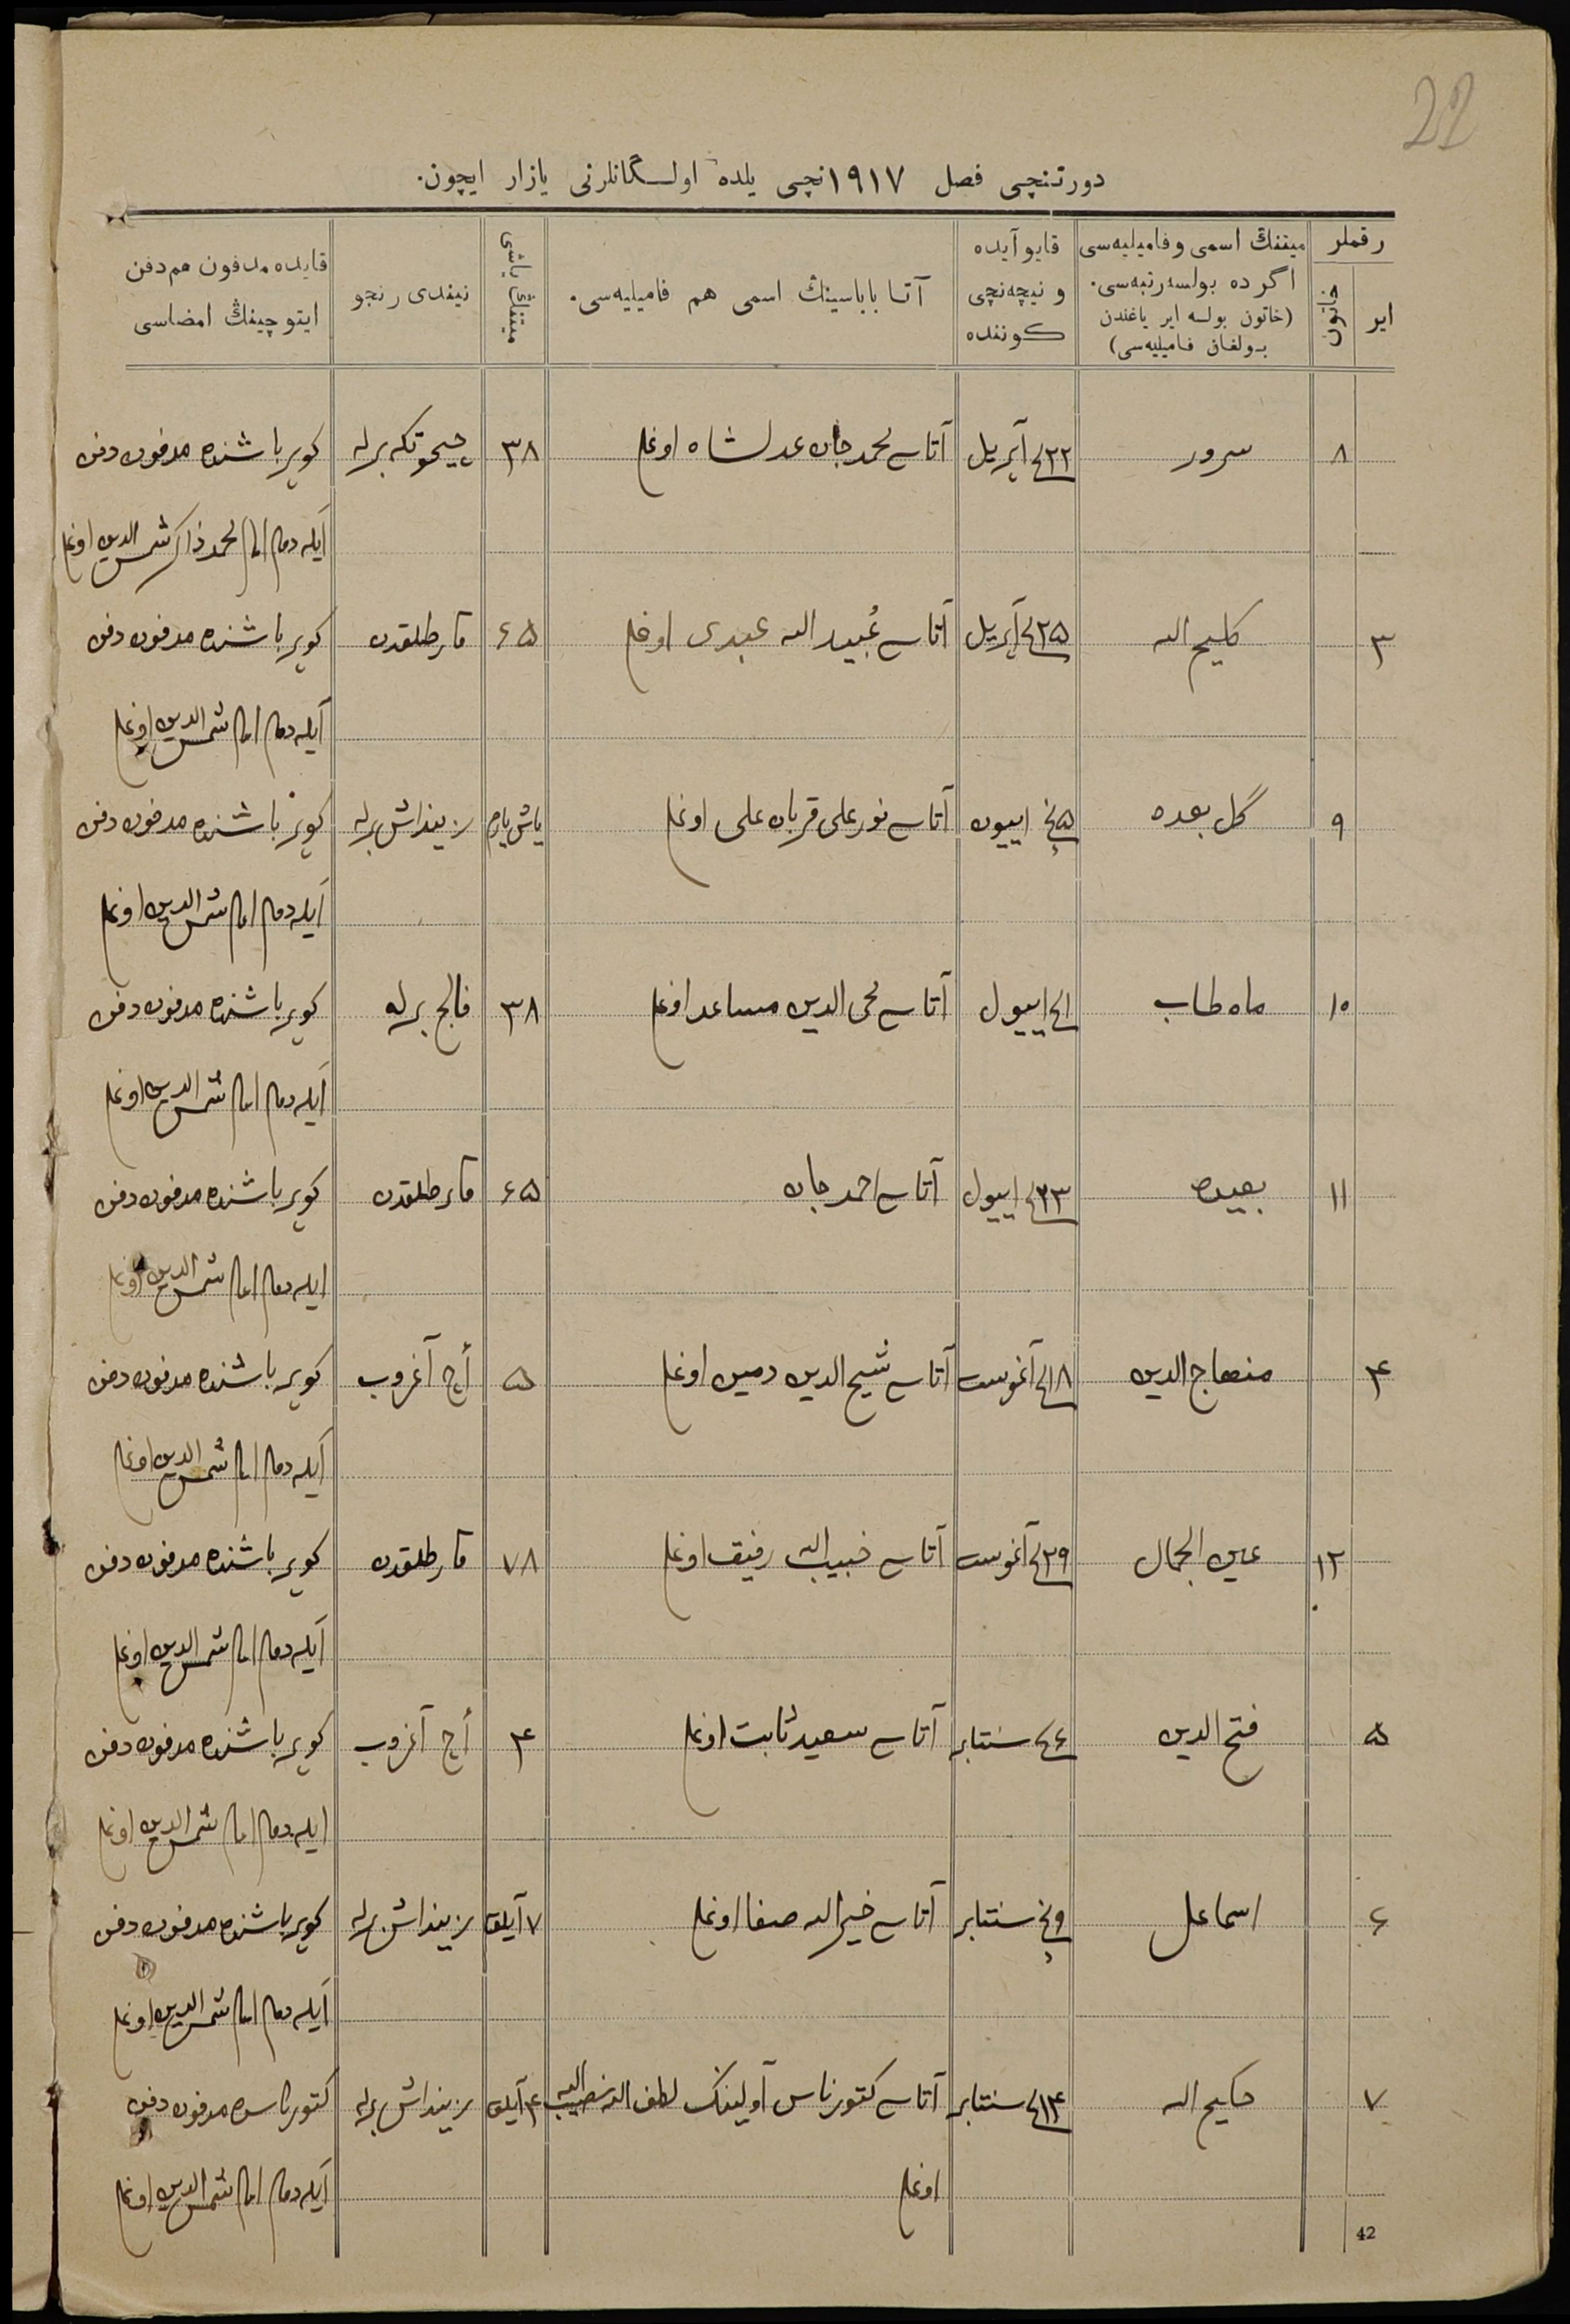 22
دورتنچی فصل ١٩١٧نچی یلده اولـگانلرنی یازار ایچون.
رقملر
ایر
خاتون
میتنڭ اسمی و فامیلیه‌سی
اگر ده بولسه رتبه‌سی.
(خاتون بولسه ایر یاغندن
بـولغان فامیلیه‌سی)
قایو آیده
و نیچه‌نچی
کوننده
آتـا باباسینڭ اسمی هم فامیلیه‌سی.
میتنڭ یاشی
نیندی رنجو
قایده مدفون هم دفن
ایتوچینڭ امضاسی
٨ سرور ٢٢ آپریل آتاسی محمد جان عدلشاه اوغلی ٣٨ برله کویر باشنده مدفون دفن
ایله‌دم امام محمد ذاکر شمس الدین اوغلی
٣ کلیم الله ٢٥ آپریل آتاسی عُبید الله عبدی اوغلی ٦٥ قارطلقدن کویر باشنده مدفون دفن
ایله‌دم امام شمس الدین اوغلی
٩ گل بعده ٥ اییون آتاسی نور علی قربان علی اوغلی یاش یارم برله کویر باشنده مدفون دفن
ایله‌دم امام شمس الدین اوغلی
١٠ ماه طاب ١ اییول آتاسی محی الدین مساعد اوغلی ٣٨ فالج برله کویر باشنده مدفون دفن
ایله‌دم امام شمس الدین اوغلی
١١ بعیده ٢٣ اییول آتاسی احمد جان ٦٥ قارطلقدن کویر باشنده مدفون دفن
ایله‌دم امام شمس الدین اوغلی
٤ منهاج الدین ١٨ آغوست آتاسی شیح الدین دمین اوغلی ٥ أچ آغروب کویر باشنده مدفون دفن
ایله‌دم امام شمس الدین اوغلی
١٢ عین الجمال ٢٩ آغوست آتاسی حبیب الله رفیق اوغلی ٧٨ قارطلقدن کویر باشنده مدفون دفن
ایله‌دم امام شمس الدین اوغلی
٥ فتح الدین ٤ سنتابر آتاسی سعید ثابت اوغلی ٤ أچ آغروب کویر باشنده مدفون دفن
ایله‌دم امام شمس الدین اوغلی
٦ اسماعل ٩ سنتابر آتاسی خیر الله صفا اوغلی ٧ آیلق برله کویر باشنده مدفون دفن
ایله‌دم امام شمس الدین اوغلی
٧ حکیم الله ١٤ سنتابر آتاسی آولینڭ لطف الله نصیب الله ٤ آیلق برله مدفون دفن
اوغلی ایله‌دم امام شمس الدین اوغلی
42